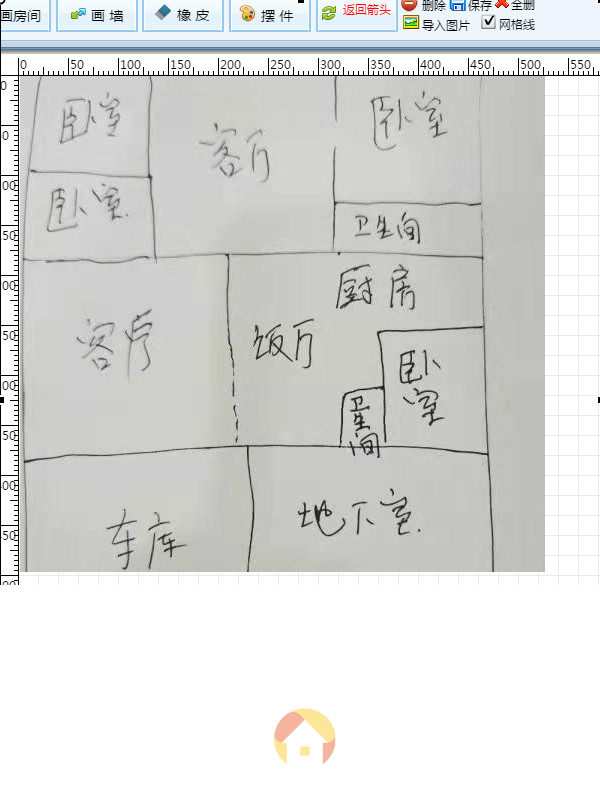 画房间 画 墙 橡 皮 摆 件 返回箭头 删除 保存 全删
导入图片 网格线
0 50 100 150 200 250 300 350 400 450 500 550
卧室 客厅 卧室
卧室
卫生间
厨房
客厅 饭厅
卧室
卫生间
车库 地下室